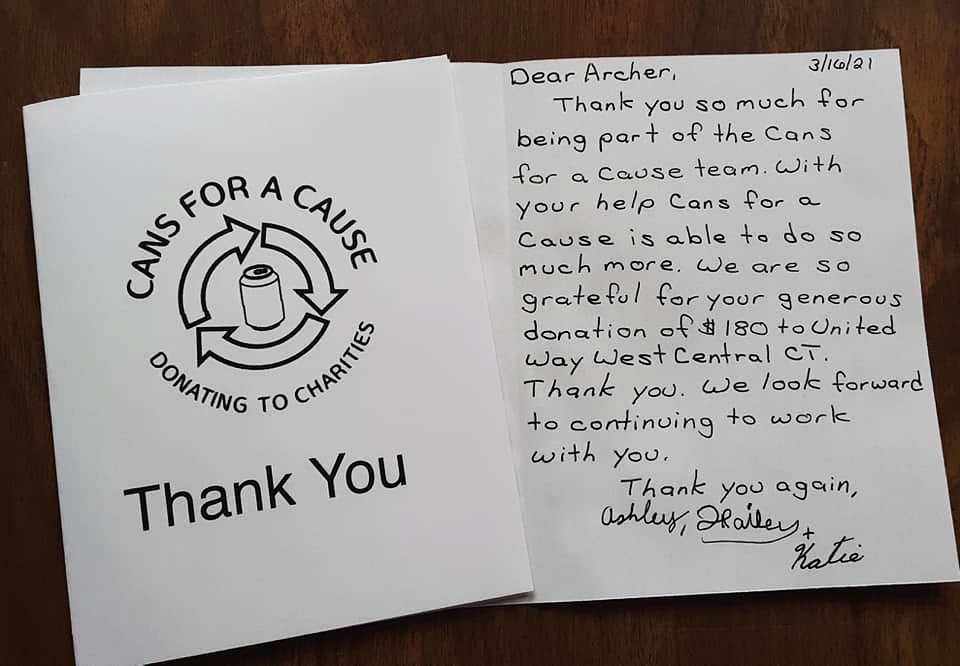 CANS FOR A CAUSE
DONATING TO CHARITIES
Thank You
3/16/21
Dear Archer,
Thank you so much for
being part of the Cans
for a Cause team. With
your help Cans for a
Cause is able to do so
much more. We are so
grateful for your generous
donation of $180 to United
Way West Central CT.
Thank you. We look forward
to continuing to work
with you.
Thank you again,
Ashley, Hailey
+
Katie